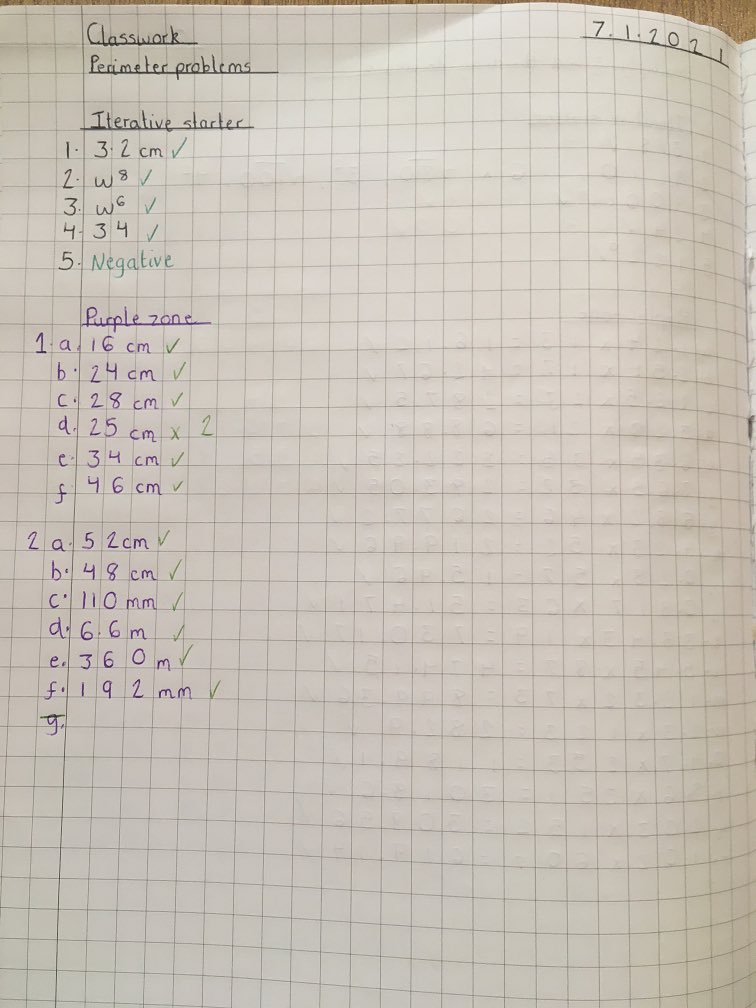 7.1.2021
Classwork
Perimeter problems
Iterative starter
1. 3.2 cm ✓
2. w⁸ ✓
3. w⁶ ✓
4. 34 ✓
5. Negative
Purple zone
1. a. 16 cm ✓
b. 24 cm ✓
c. 28 cm ✓
d. 25 cm x 2
e. 34 cm ✓
f 46 cm ✓
2 a. 52cm ✓
b. 48 cm ✓
c. 110 mm ✓
d. 6.6m ✓
e. 360 m ✓
f. 192 mm ✓
g.